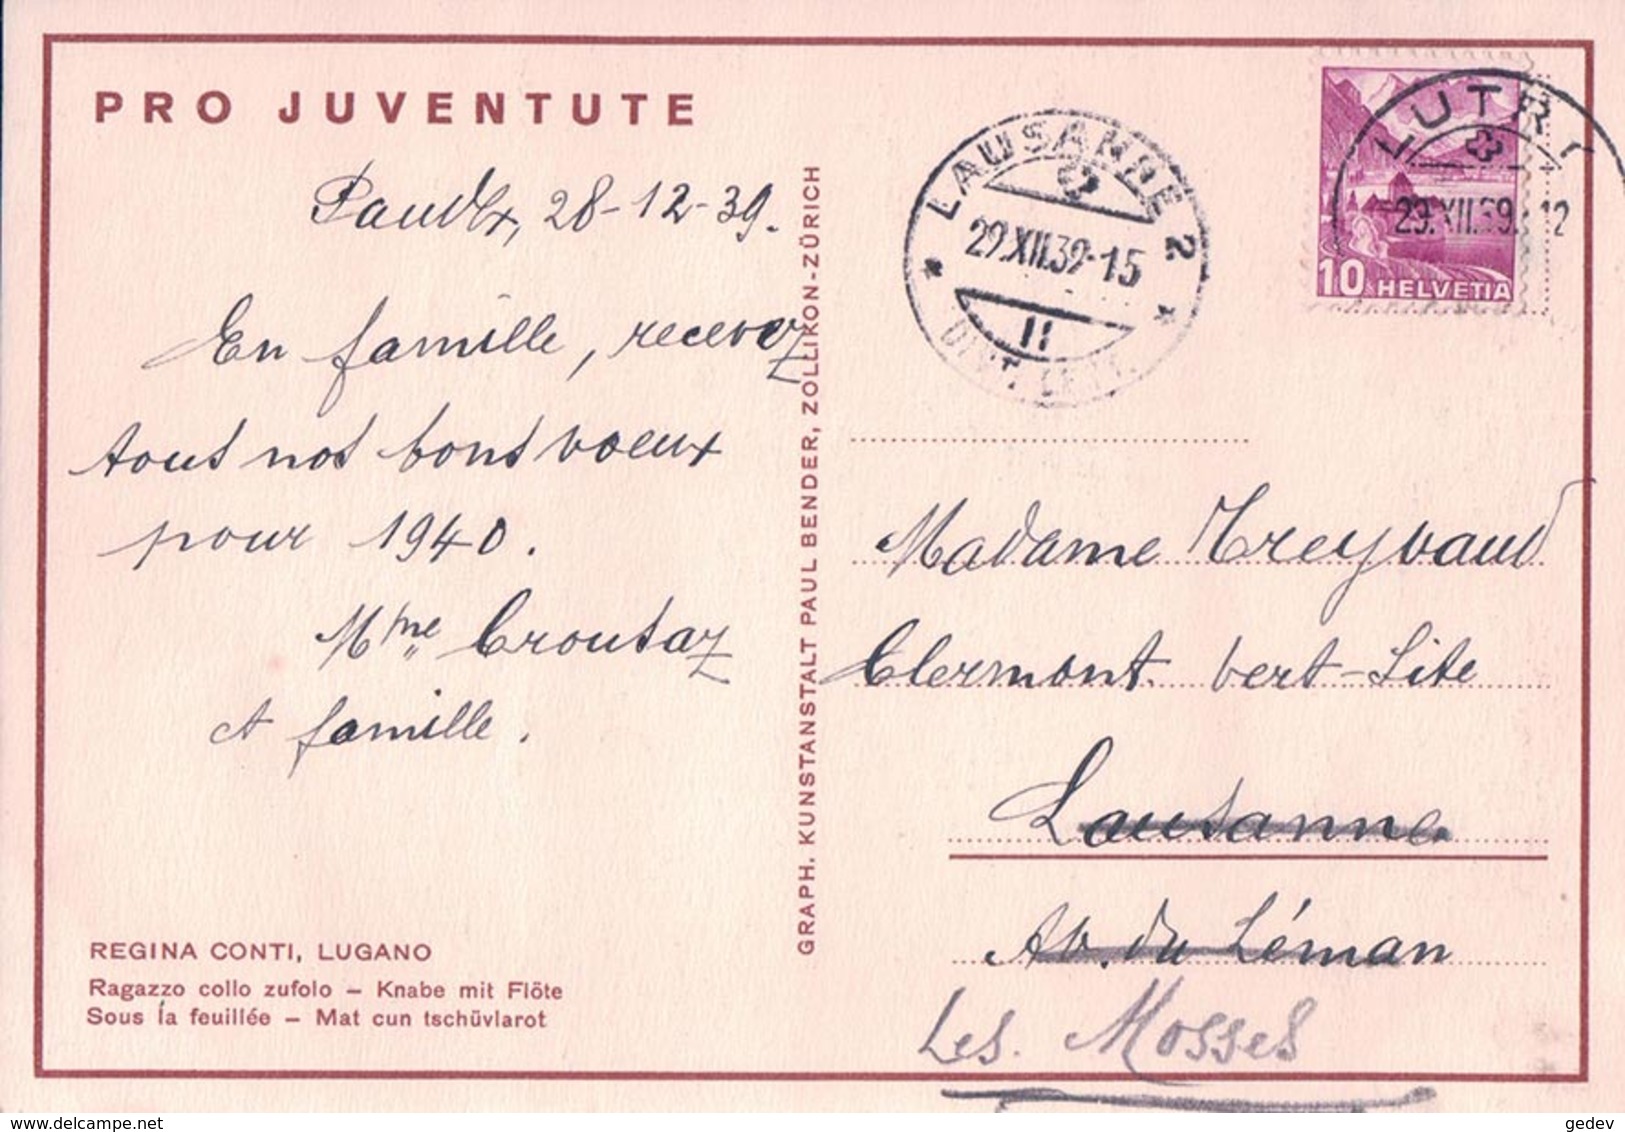 PRO JUVENTUTE
Paudex, 28-12-39.
En famille, recevez
tous nos bons voeux
pour 1940.
Mme Croutaz
et famille.
REGINA CONTI, LUGANO
Ragazzo collo zufolo – Knabe mit Flöte
Sous la feuillée – Mat cun tschüvlarot
GRAPH. KUNSTANSTALT PAUL BENDER, ZOLLIKON-ZÜRICH
LAUSANNE 2
29.XII.39-15
II
DIST. LETT.
LUTRY
29.XII.39. 12
10 HELVETIA
Madame Treyvaud
Clermont vert-Site
Lausanne
Av. du Léman
Les Mosses
gedev